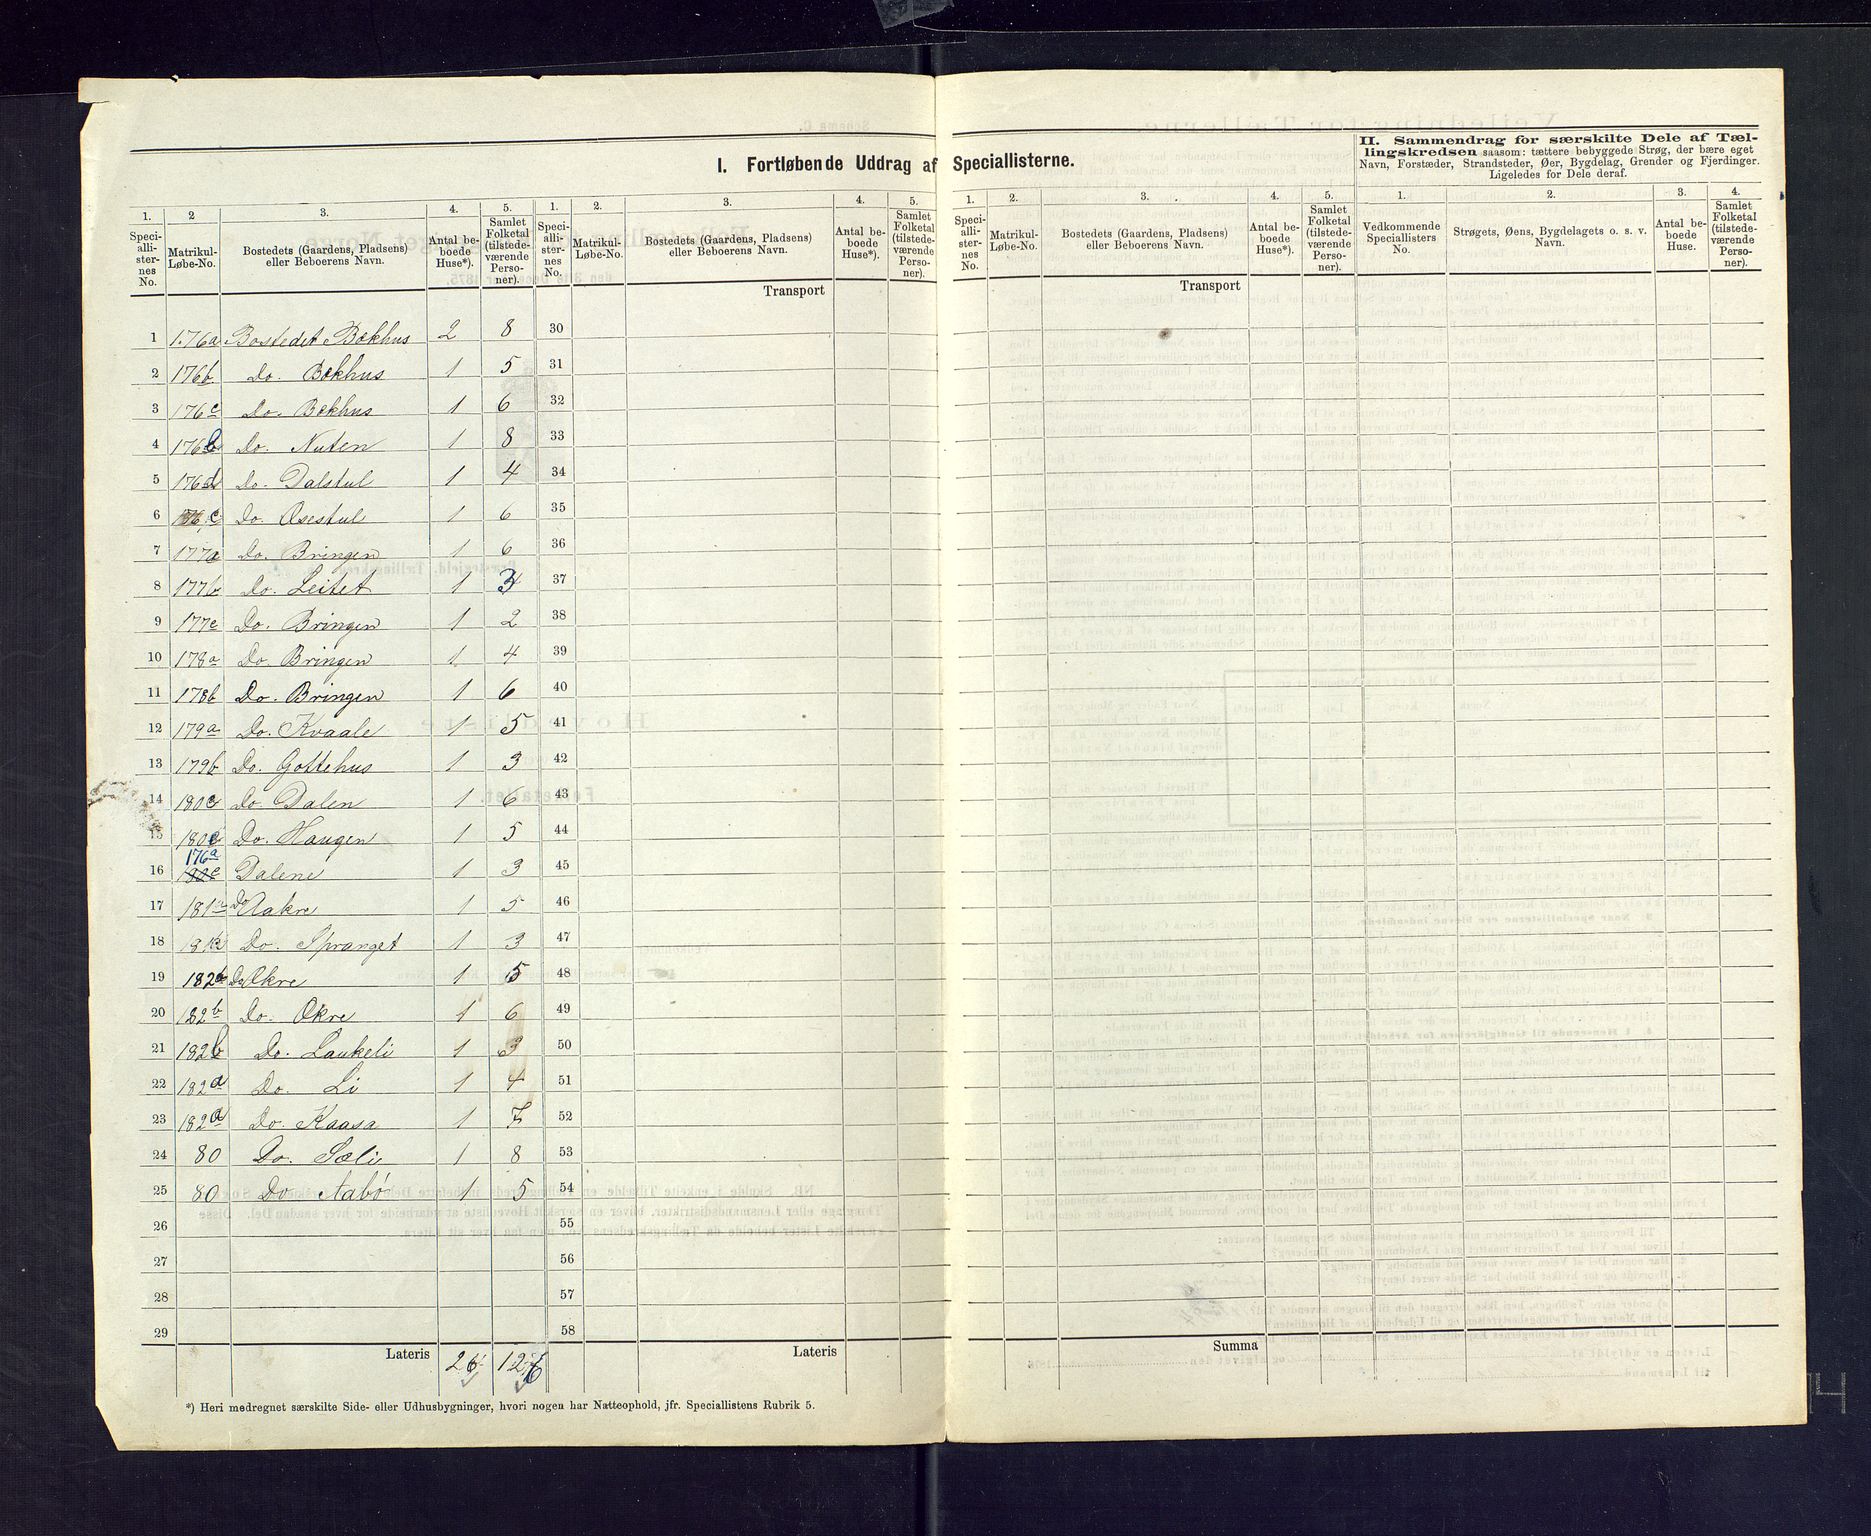 I. Fortløbende Uddrag af Speciallisterne.
II. Sammendrag for særskilte Dele af Tællingskredsen saasom: tættere bebyggede Strøg, der bære eget
Navn, Forstæder, Strandsteder, Øer, Bygdelag, Grender og Fjerdinger.
Ligeledes for Dele deraf.
1. 2 3. 4. 5. 1. 2. 3. 4. 5. 1. 2. 3. 4. 5. 1. 2. 3. 4.
Speciallisternes No. Matrikul-Løbe-No. Bostedets (Gaardens, Pladsens) eller Beboerens Navn. Antal beboede Huse*). Samlet Folketal (tilstedeværende Personer).
Speciallisternes No. Matrikul-Løbe-No. Bostedets (Gaardens, Pladsens) eller Beboerens Navn. Antal beboede Huse*). Samlet Folketal (tilstedeværende Personer).
Speciallisternes No. Matrikul-Løbe-No. Bostedets (Gaardens, Pladsens) eller Beboerens Navn. Antal beboede Huse*). Samlet Folketal (tilstedeværende Personer).
Vedkommende Speciallisters No. Strøgets, Øens, Bygdelagets o. s. v. Navn. Antal beboede Huse. Samlet Folketal (tilstedeværende Personer).
Transport Transport
1 176a Bostedet Bækhus 2 8 30
2 176b Do. Bækhus 1 5 31
3 176c Do. Bækhus 1 6 32
4 176b Do. Nuten 1 8 33
5 176d Do. Dalstul 1 4 34
6 176c Do. Øsestul 1 6 35
7 177a Do. Bringen 1 6 36
8 177b Do. Leitet 1 3 37
9 177c Do. Bringen 1 2 38
10 178a Do. Bringen 1 4 39
11 178b Do. Bringen 1 6 40
12 179a Do. Kvaale 1 5 41
13 179b Do. Gottehus 1 3 42
14 180c Do. Dalen 1 6 43
15 180c Do. Haugen 1 5 44
176a
16 180c Dalene 1 3 45
17 181a Do Aakre 1 5 46
18 181 Do. Spranget 1 3 47
19 182b Do Økre 1 5 48
20 182b Do. Økre 1 6 49
21 182b Do. Laukeli 1 3 50
22 182a Do. Li 1 4 51
23 182a Do. Kaasa 1 7 52
24 80 Do. Sæli 1 8 53
25 80 Do Aabø 1 5 54
26 55
27 56
28 57
29 58
Lateris 26 126 Lateris Summa
*) Heri medregnet særskilte Side- eller Udhusbygninger, hvori nogen har Natteophold, jfr. Speciallistens Rubrik 5.